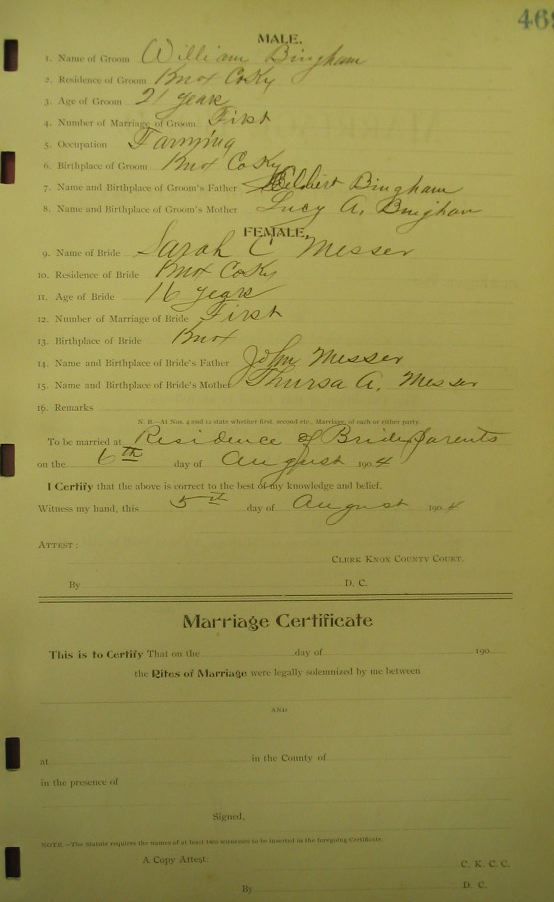 468
MALE.
1. Name of Groom William Bingham
2. Residence of Groom Knox Co Ky
3. Age of Groom 21 years
4. Number of Marriage of Groom First
5. Occupation Farming
6. Birthplace of Groom Knox Co Ky
7. Name and Birthplace of Groom's Father Bingham
8. Name and Birthplace of Groom's Mother Lucy A. Bingham
FEMALE.
9. Name of Bride Sarah C Messer
10. Residence of Bride Knox Co Ky
11. Age of Bride 16 years
12. Number of Marriage of Bride First
13. Birthplace of Bride Knox
14. Name and Birthplace of Bride's Father John Messer
15. Name and Birthplace of Bride's Mother Thursa A. Messer
16. Remarks
N. B.—At Nos. 4 and 12 state whether first, second etc., Marriage, of each or either party.
To be married at Residence of Brides parents
on the 6th day of August 190 4
I Certify that the above is correct to the best of my knowledge and belief.
Witness my hand, this 5th day of August 190 4
ATTEST:
CLERK KNOX COUNTY COURT.
By D. C.
Marriage Certificate
This is to Certify That on the day of 190
the Rites of Marriage were legally solemnized by me between
AND
at in the County of
in the presence of
Signed,
NOTE.—The Statute requires the names of at least two witnesses to be inserted in the foregoing Certificate.
A Copy Attest: C. K. C. C.
By D. C.